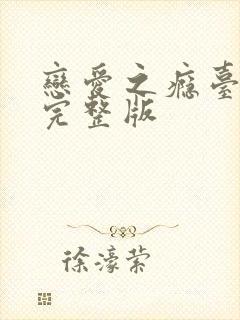 戀愛之癮臺
完整版
徐濠縈